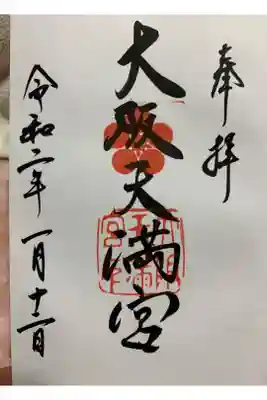 奉拝
大阪天満宮
令和二年一月十二日